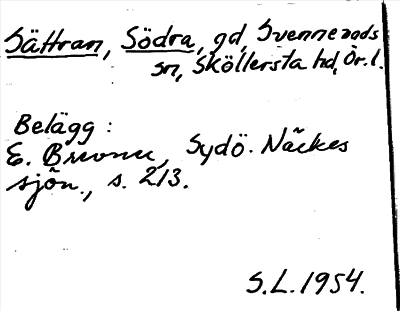 Sättran, Södra, gd, Svennevads
sn, Sköllersta hd, Ör. l.
Belägg:
E. Bruonn, Sydö. Näckes
sjön., s. 213.
S.L. 1954.